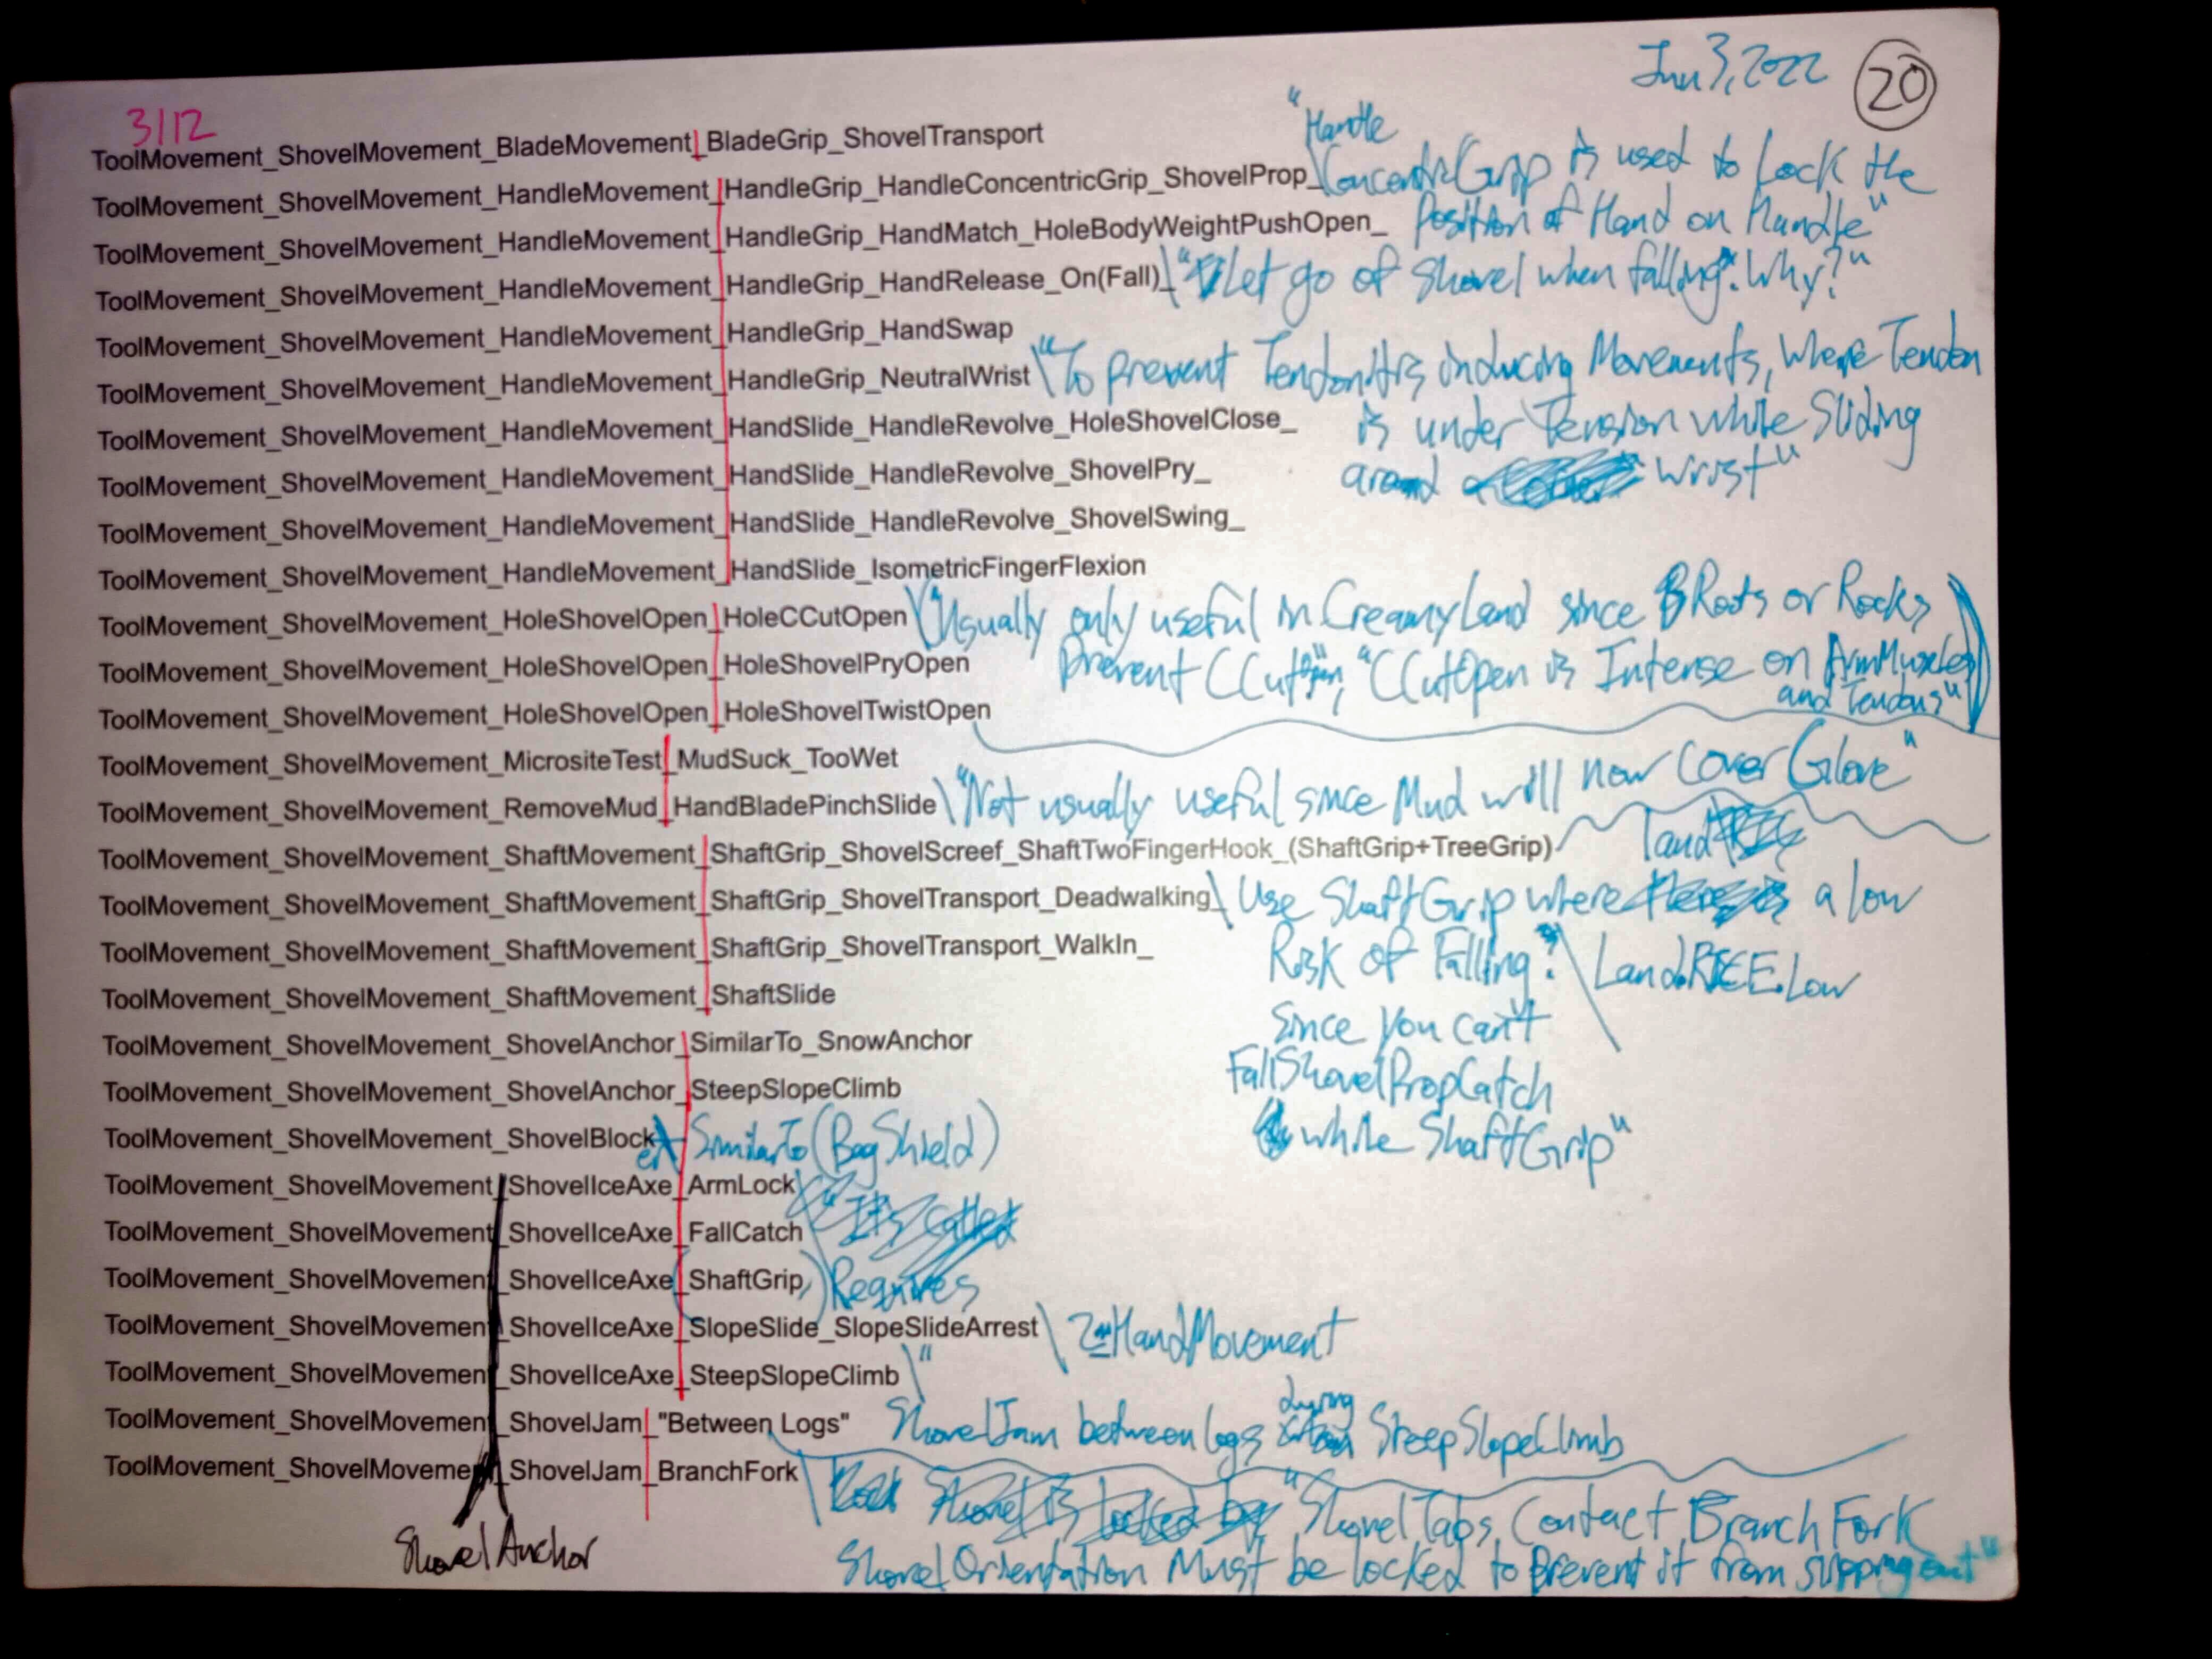 Jun 3, 2022 20
3/12
ToolMovement_ShovelMovement_BladeMovement|_BladeGrip_ShovelTransport
"Handle
ToolMovement_ShovelMovement_HandleMovement_|HandleGrip_HandleConcentricGrip_ShovelProp_\ConcentricGrip is used to Lock the
ToolMovement_ShovelMovement_HandleMovement_|HandleGrip_HandMatch_HoleBodyWeightPushOpen_ Position of Hand on Handle"
ToolMovement_ShovelMovement_HandleMovement_|HandleGrip_HandRelease_On(Fall)_\"Let go of Shovel when falling. Why?"
ToolMovement_ShovelMovement_HandleMovement_|HandleGrip_HandSwap
ToolMovement_ShovelMovement_HandleMovement_|HandleGrip_NeutralWrist\"To prevent Tendonitis inducing Movements, Where Tendon
ToolMovement_ShovelMovement_HandleMovement_|HandSlide_HandleRevolve_HoleShovelClose_ is under Tension while Sliding
ToolMovement_ShovelMovement_HandleMovement_|HandSlide_HandleRevolve_ShovelPry_ around wrist"
ToolMovement_ShovelMovement_HandleMovement_|HandSlide_HandleRevolve_ShovelSwing_
ToolMovement_ShovelMovement_HandleMovement_|HandSlide_IsometricFingerFlexion
ToolMovement_ShovelMovement_HoleShovelOpen_|HoleCCutOpen\"Usually only useful in CreamyLand since Roots or Rocks
ToolMovement_ShovelMovement_HoleShovelOpen_|HoleShovelPryOpen prevent CCutOpen", "CCutOpen is Intense on ArmMuscles
and Tendons"
ToolMovement_ShovelMovement_HoleShovelOpen_|HoleShovelTwistOpen
ToolMovement_ShovelMovement_MicrositeTest|_MudSuck_TooWet
ToolMovement_ShovelMovement_RemoveMud_|HandBladePinchSlide\"Not usually useful since Mud will now cover Glove"
ToolMovement_ShovelMovement_ShaftMovement_|ShaftGrip_ShovelScreef_ShaftTwoFingerHook_(ShaftGrip+TreeGrip) land
ToolMovement_ShovelMovement_ShaftMovement_|ShaftGrip_ShovelTransport_Deadwalking_\Use ShaftGrip where a low
ToolMovement_ShovelMovement_ShaftMovement_|ShaftGrip_ShovelTransport_WalkIn_ Risk of Falling. \Land.RISE.Low
ToolMovement_ShovelMovement_ShaftMovement_|ShaftSlide
Since you can't
ToolMovement_ShovelMovement_ShovelAnchor_|SimilarTo_SnowAnchor
FallShovelPropCatch
ToolMovement_ShovelMovement_ShovelAnchor_|SteepSlopeClimb
while ShaftGrip"
ToolMovement_ShovelMovement_ShovelBlocker SimilarTo(BagShield)
ToolMovement_ShovelMovement_ShovelIceAxe_|ArmLock
ToolMovement_ShovelMovement_ShovelIceAxe_|FallCatch
ToolMovement_ShovelMovement_ShovelIceAxe_(ShaftGrip) Requires
ToolMovement_ShovelMovement_ShovelIceAxe_|SlopeSlide_SlopeSlideArrest \ 2HandMovement
ToolMovement_ShovelMovement_ShovelIceAxe_|SteepSlopeClimb\"
ToolMovement_ShovelMovement_ShovelJam|_"Between Logs" ShovelJam between logs during SteepSlopeClimb
ToolMovement_ShovelMovement_ShovelJam|_BranchFork\ "ShovelTabs Contact BranchFork
ShovelAnchor
ShovelOrientation Must be locked to prevent it from slipping out"